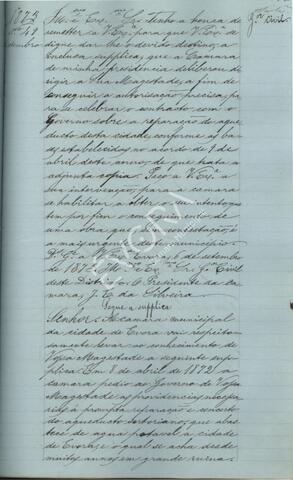 Ill.mo e Ex.mo Sr. Tenho a honra de
remetter a V. Ex.ª para que V. Ex.ª se
digne dar lhe o devido destino, a
inclusa supplica, que a Camara
de minha presidencia deliberou di-
rigir a Sua Magestade, a fim de
conseguir a autorisação precisa, pa-
ra se celebrar o contracto, com o
Governo sobre a reparação do aque-
ducto desta cidade, conforme as ba-
ses estabelecidas no acordo de 9 de
abril deste anno, de que trata a
adjunta copia. Peço a V. Ex.ª a
sua intervenção, para a camara
se habilitar a obter o seu intento, que
tem por fim o conseguimento de
uma obra que é sem contestação, é
a mais urgente deste municipio.
D.s G.e a V. Ex.ª Evora, 6 de setembro
de 1873. Ill.mo e Ex.mo Sr. G.or Civil
deste Districto. O Presidente da Ca-
mara, J. E. da Silveira
Segue a supplica
Senhor: A camara municipal
da cidade de Evora vai respeito-
samente levar ao conhecimento de
Vossa Magestade a seguinte sup-
plica. Em 8 de abril de 1872, a
camara pedio ao Governo de Vossa
Magestade as providencias necessa-
rias á prompta reparação e concerto
do aqueducto sertoriano, que abas-
tece de agua potavel a cidade
de Evora, e o qual se acha desde
muitos annos em grande ruina.